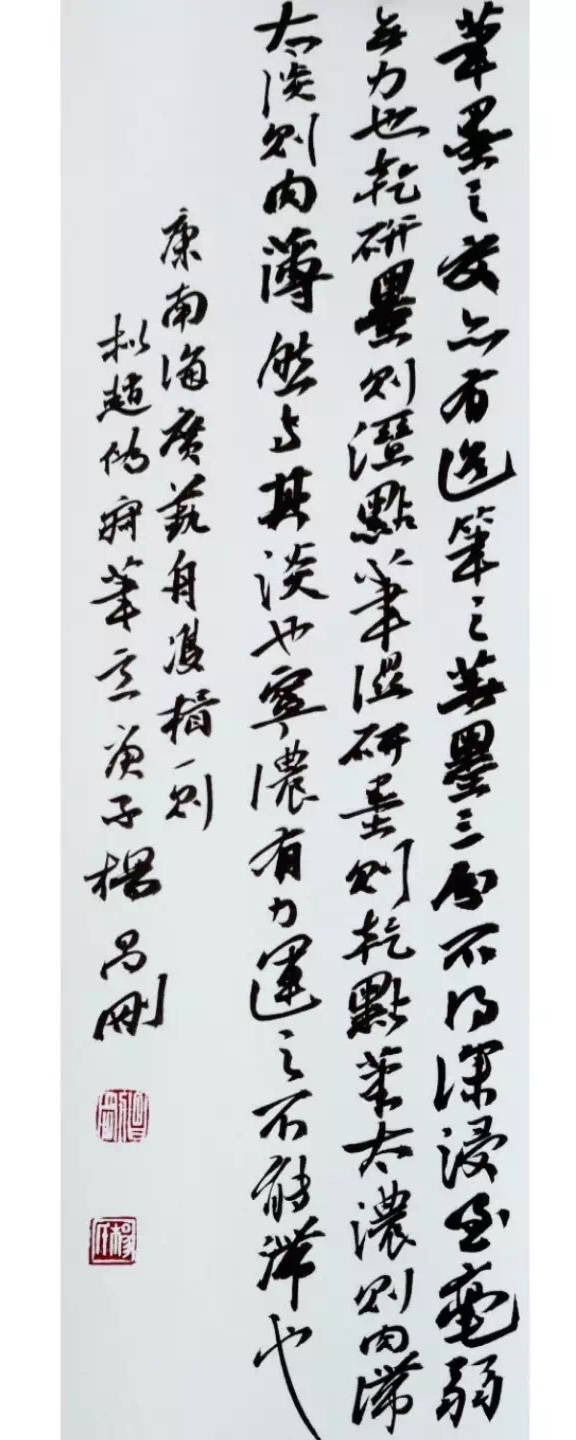 筆墨之交亦有道筆之著墨三分不得深浸至毫弱
無力也乾研墨則溼點筆溼研墨則乾點筆太濃則肉滯
太淡則肉薄然與其淡也寧濃有力運之不能滯也
康南海廣藝舟雙楫一則
擬趙悔庵筆意庚子楊昌剛